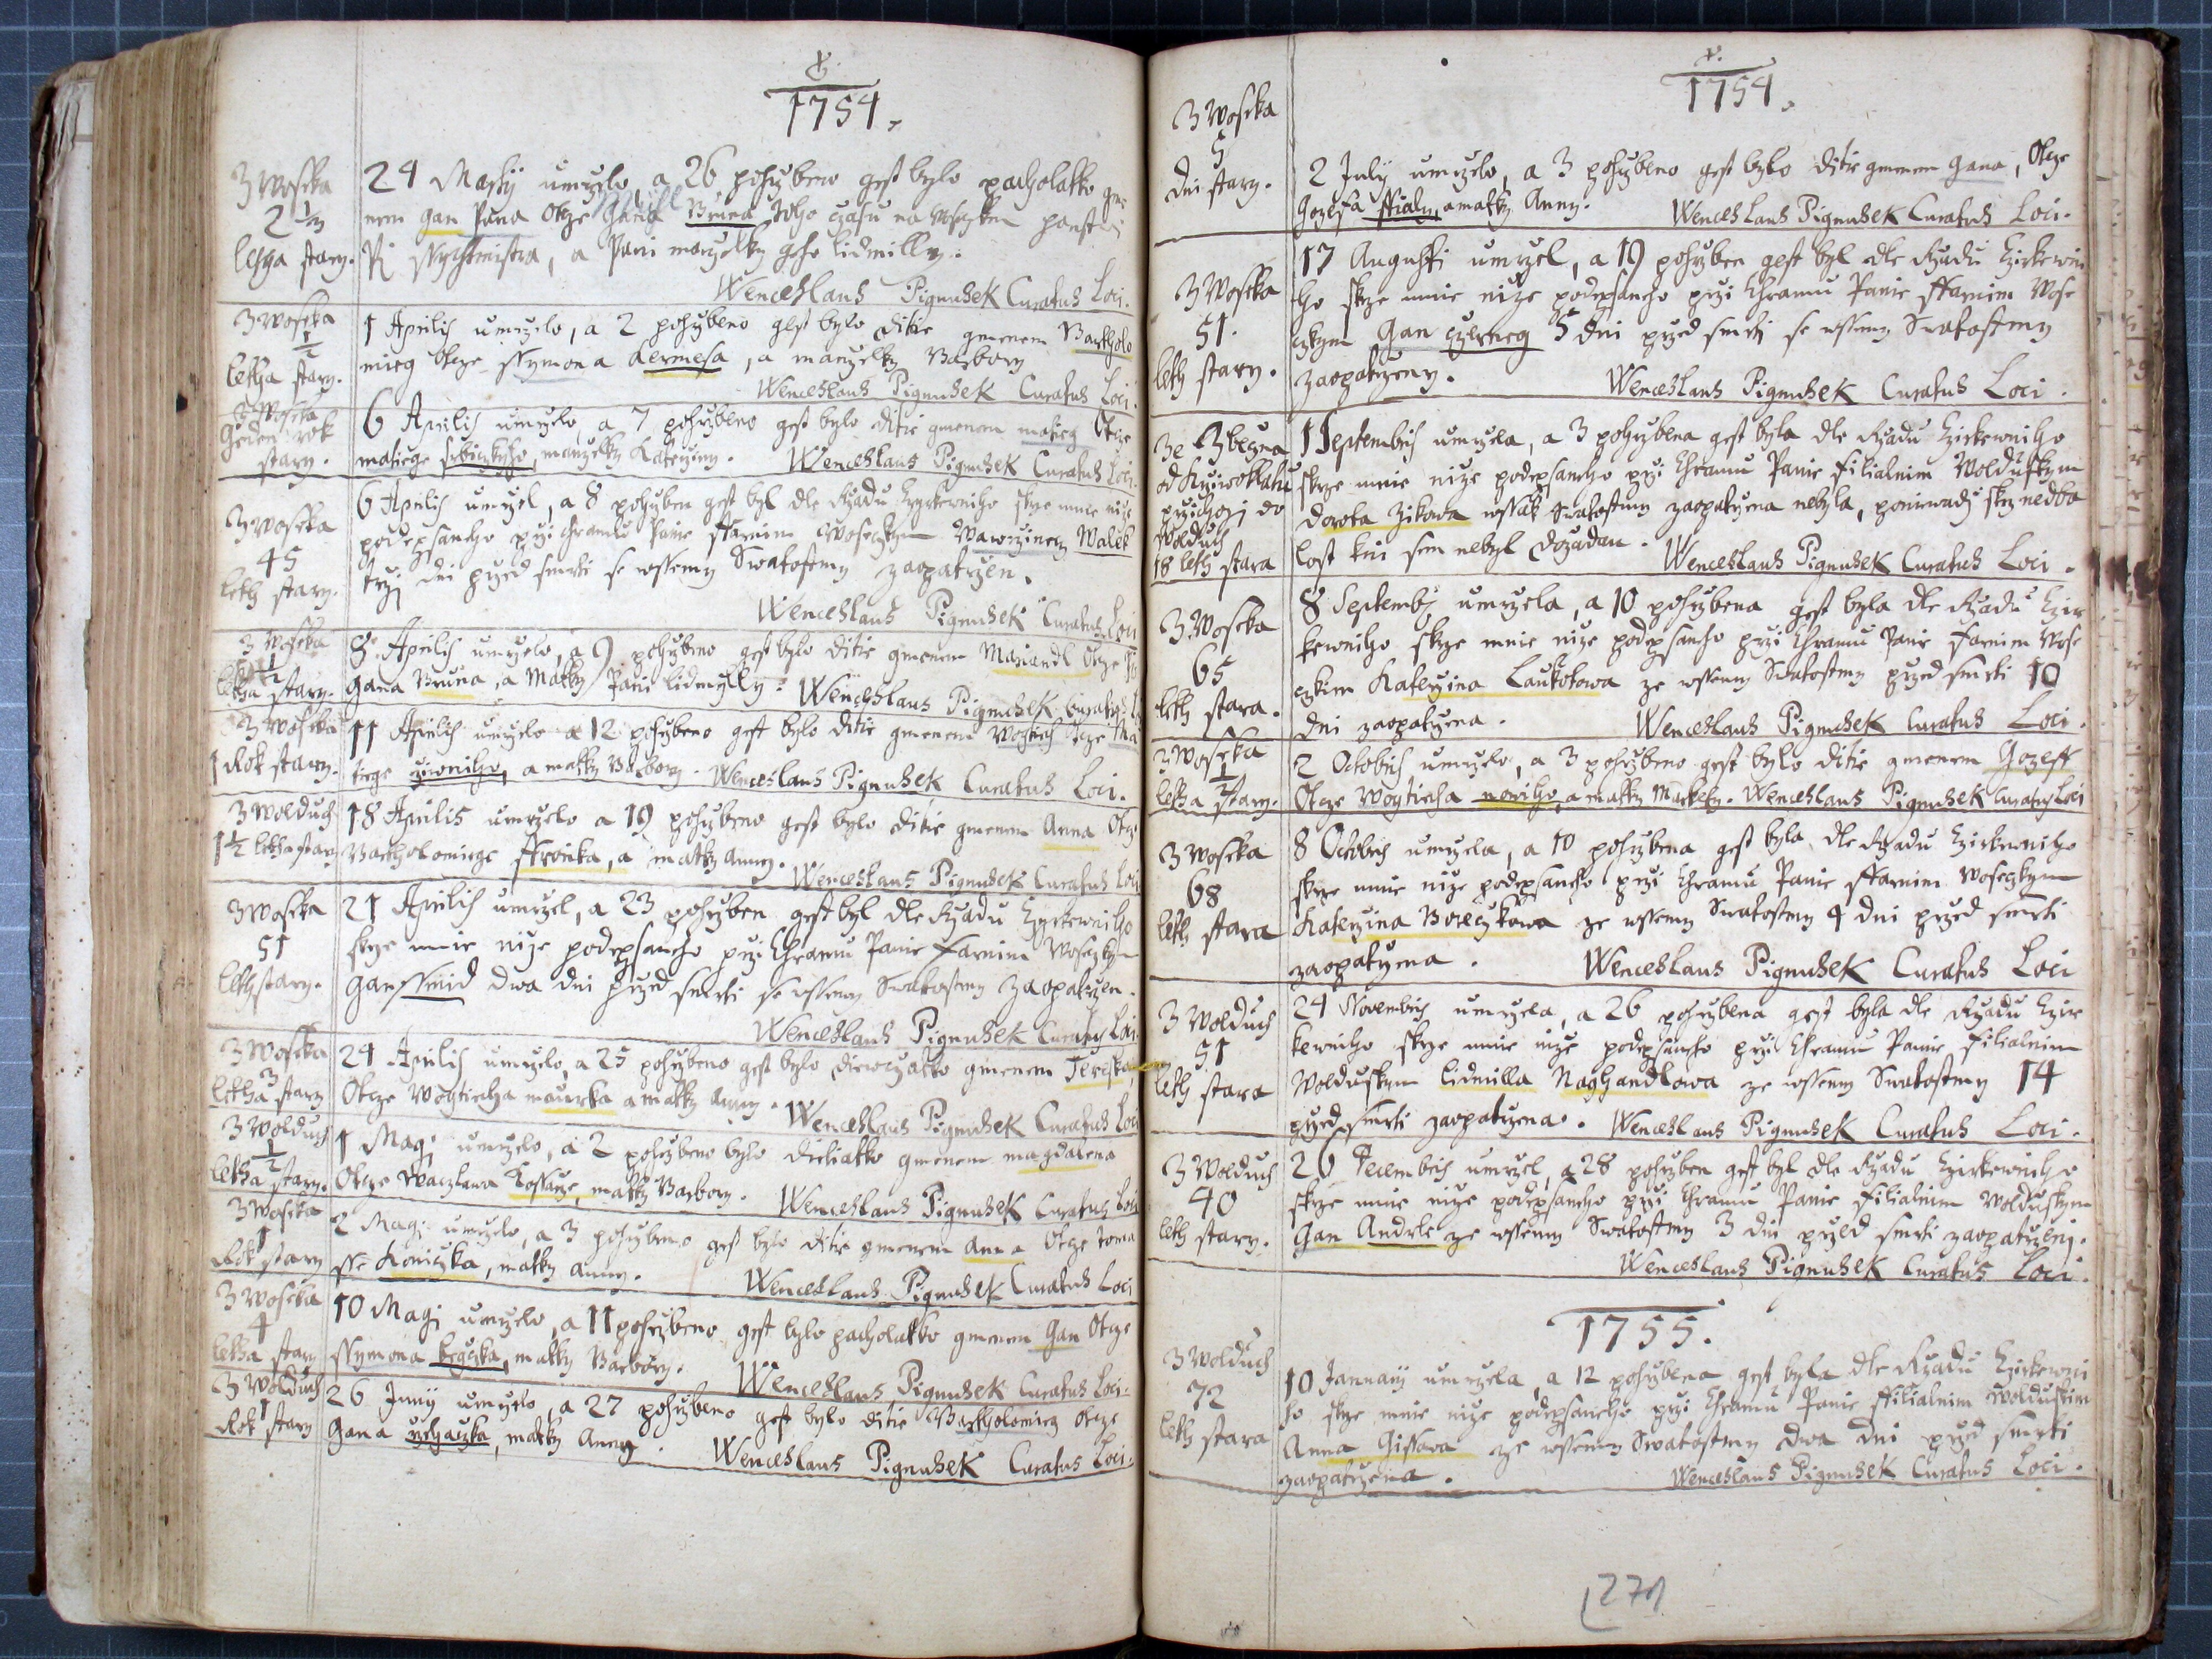 1754.
Z Woseka
2 ½
letha stary.
24 Martij umrzelo, a 26 pohrzbeno gest bylo pacholatko gme
nem Gan Pana Otcze Gana Bruna toho czasu na Wosetzkem panst
Rychtmistra, a Pani manzelky geho Lidmilly.
Wenceslaus Pignusek Curatus Loci.
Z Woseka
½
letha stary.
1 Aprilis umrzelo, a 2 pohrzbeno gest bylo ditie gmenem Bartholo
mieg Otcze Ssymona Kermesa, a manzelky Barbory
Wenceslaus Pignusek Curatus Loci.
Z Woseka
Geden rok
stary.
6 Aprilis umrzelo, a 7 pohrzbeno gest bylo ditie gmenem Matieg Otcze
Matiege Srbiczkyho, manzelky Katerziny. Wenceslaus Pignusek Curatus Loci.
Z Woseka
45
leth stary.
6 Aprilis umrzel, a 8 pohrzben gest byl dle Rzadu Czyrkewniho skrze mne nize
podepsaneho przi Chramu Panie Ffarnim Woseczkym Wawrzinecz Walek
trzj dni przed smrti se wssemy Swatostmy zaopatrzen.
Wenceslaus Pignusek Curatus Loci
Z Woseka
½
letha stary.
8 Aprilis umrzelo, a 9 pohrzbeno gest bylo ditie gmenem Mariandl Otcze
Gana Bruna, a Matky Pani Lidmylly. Wenceslaus Pignusek Curatus
Z Woseka
1 Rok stary.
11 Aprilis umrzelo a 12 pohrzbeno gest bylo ditie gmenem Wogtiech Otcze Ma
tiege, a matky Barbory. Wenceslaus Pignusek Curatus Loci.
Z Wolduch
1½ letha stary
18 Aprilis umrzelo a 19 pohrzbeno gest bylo ditie gmenem Anna Otcze
Bartholomiege Ffronka, a matky Anny. Wenceslaus Pignusek Curatus Loci
Z Woseka
51
leth stary.
21 Aprilis umrzel, a 23 pohrzben gest byl dle Rzadu Czyrkewniho
skrze mnie nize podepsaneho przi Chramu Panie Farnim Woseczkym
Gan Ssmid dwa dni przed smrti se wssemy Swatostmy zaopatrzen.
Wenceslaus Pignusek Curatus Loci.
Z Woseka
3
letha stary
24 Aprilis umrzelo, a 25 pohrzbeno gest bylo diewczatko gmenem Terezka,
Otcze Wogtiecha Maurka a matky Anny. Wenceslaus Pignusek Curatus Loci
Z Wolduch
½
letha stary.
1 Magj umrzelo, a 2 pohrzbeno bylo dietiatko gmenem Magdalena
Otcze Waczlawa Kossarze, matky Barbory. Wenceslaus Pignusek Curatus Loci
Z Woseka
1
Rok stary
2 Magj umrzelo, a 3 pohrzbeno gest bylo ditie gmenem Anna Otcze Toma
sse Koniczka, matky Anny. Wenceslaus Pignusek Curatus Loci
Z Woseka
4
letha stary
10 Magj umrzelo, a 11 pohrzbeno gest bylo pacholatko gmenem Gan Otcze
Ssymona, matky Barbory. Wenceslaus Pignusek Curatus Loci.
Z Wolduch
1
Rok stary
26 Junij umrzelo, a 27 pohrzbeno gest bylo ditie Bartholomieg Otcze
Gana, matky Anny. Wenceslaus Pignusek Curatus Loci.
1754.
Z Woseka
5
dni stary.
2 July umrzelo, a 3 pohrzbeno gest bylo ditie gmenem Gana, Otcze
Gozefa Ffialy, a matky Anny. Wenceslaus Pignusek Curatus Loci.
Z Woseka
51.
leth stary.
17 Augusti umrzel, a 19 pohrzben gest byl dle Rzadu Czirkewni
ho skrze mnie nize podepsaneho przi Chramu Panie Ffarnim Wose
czkym Gan Czerneg 5 dni przed smrti se wssemy Swatostmy
zaopatrzeny. Wenceslaus Pignusek Curatus Loci.
Ze Zbeczna
od Krziwoklatu
przichozj do
Wolduch
18 leth stara
1 Septembris umrzela, a 3 pohrzbena gest byla dle Rzadu Czirkewniho
skrze mnie nize podepsaneho przi Chramu Panie Filialnim Wolduskym
Dorota Zikowa wssak Swatostmy zaopatrzena nebyla, poniewadz skrz nedba
lost k ni sem nebyl dozadan. Wenceslaus Pignusek Curatus Loci.
Z Woseka
65
leth stara.
8 Septembr umrzela, a 10 pohrzbena gest byla dle Rzadu Czir
kewniho skrze mnie nize podepsaneho przi Chramu Panie Farnim Wose
czkim Katerzina Laukotowa ze wssemy Swatostmy przed smrti 10
dni zaopatrzena. Wenceslaus Pignusek Curatus Loci.
Z Woseka
½
letha stary.
2 Octobris umrzelo, a 3 pohrzbeno gest bylo ditie gmenem Gozeff
Otcze Wogtiecha Noviho, a matky Markety. Wenceslaus Pignusek Curatus Loci
Z Woseka
68
leth stara
8 Octobris umrzela, a 10 pohrzbena gest byla dle Rzadu Czirkewniho
skrze mnie nize podepsaneho przi Chramu Panie Ffarnim Woseczkym
Katerzina Boreczkowa ze wssemy Swatostmy 4 dni przed smrti
zaopatrzena. Wenceslaus Pignusek Curatus Loci
Z Wolduch
51
leth stara
24 Novembris umrzela, a 26 pohrzbena gest byla dle Rzadu Czir
kewniho skrze mnie nize podepsaneho przi Chramu Panie Filialnim
Wolduskym Lidmilla Naghandlowa ze wssemy Swatostmy 14
przed smrti zaopatrzena. Wenceslaus Pignusek Curatus Loci.
Z Wolduch
40
leth stary.
26 Decembris umrzel, a 28 pohrzben gest byl dle Rzadu Czirkewniho
skrze mnie nize podepsaneho przi Chramu Panie Filialnim Wolduskym
Gan Andrle ze wssemy Swatostmy 3 dni przed smrti zaopatrzenj.
Wenceslaus Pignusek Curatus Loci.
1755.
Z Wolduch
72
leth stara
10 Januarij umrzela, a 12 pohrzbena gest byla dle Rzadu Czirkewni
ho skrze mnie nize podepsaneho przi Chramu Panie Ffilialnim Wolduskim
Anna Gissova ze wssemy Swatostmy dwa dni przed smrti
zaopatrzena. Wenceslaus Pignusek Curatus Loci.